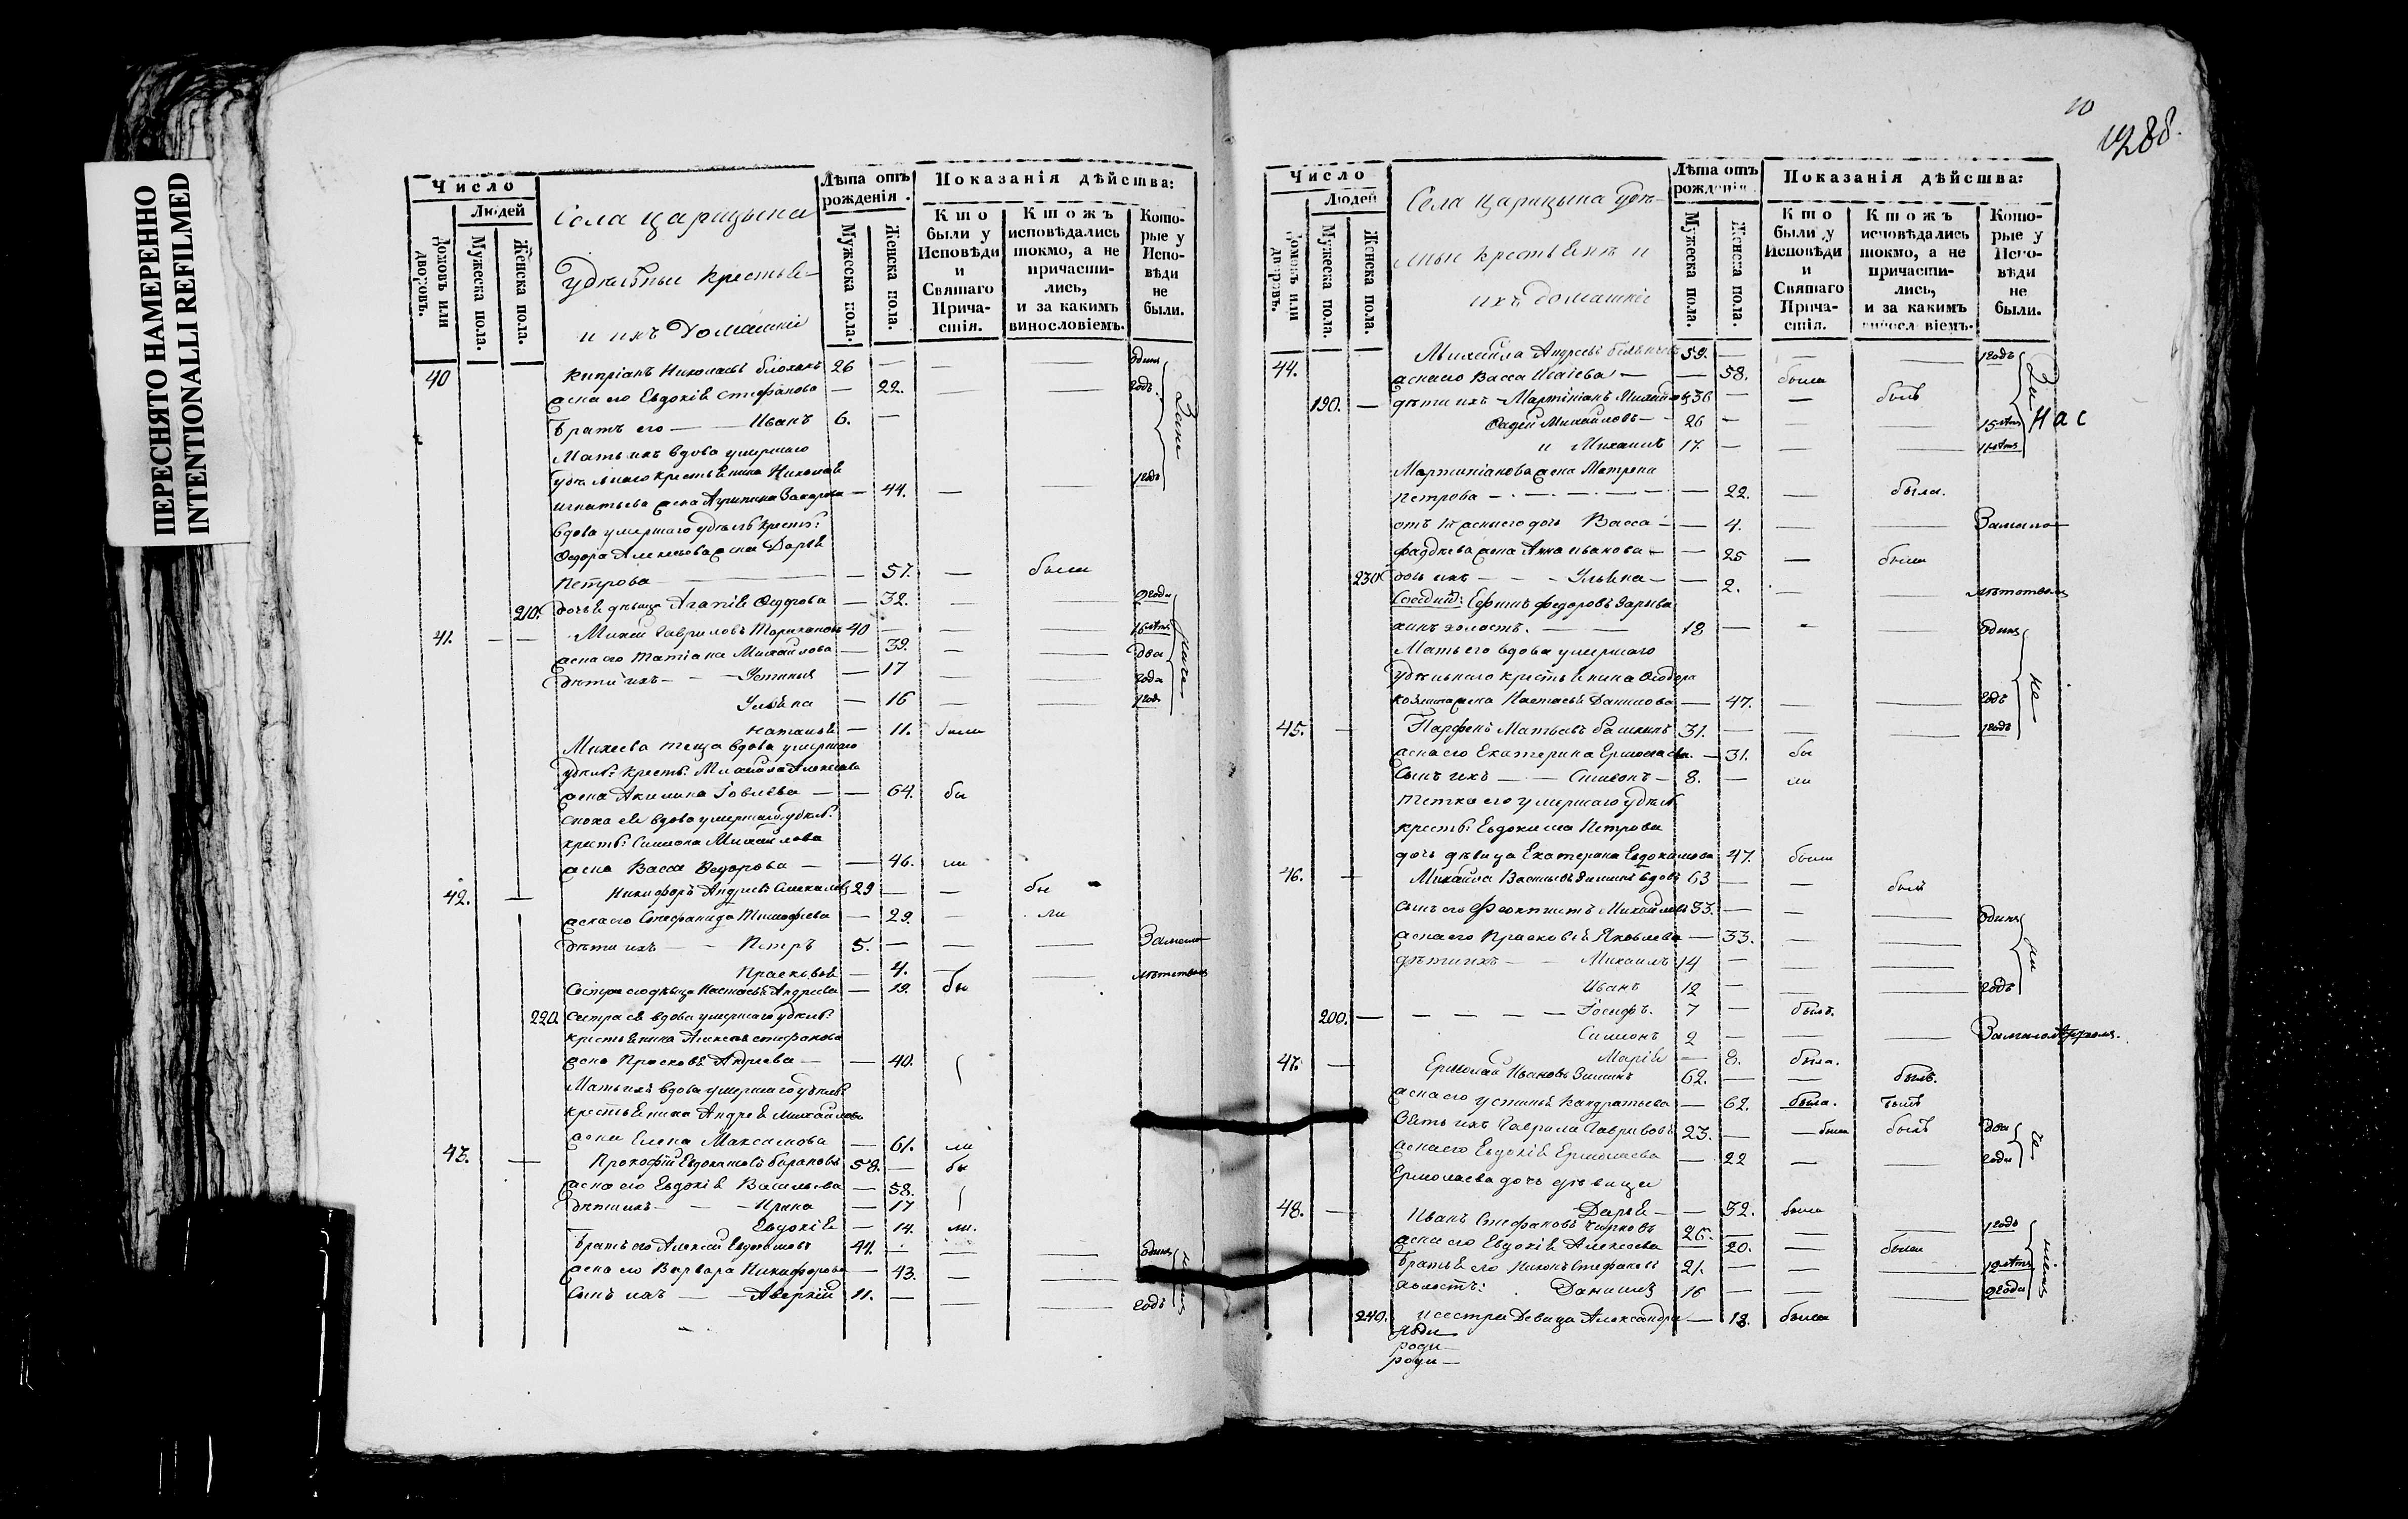 ПЕРЕСНЯТО НАМЕРЕННО
INTENTIONALLI REFILMED
Число
Людей
Домовъ или дворовъ.
Мужеска пола.
Женска пола.
Села Царицына
Удѣльныи Крестьѣ-
и ихъ домашніе
Лѣта отъ рожденія.
Мужеска пола.
Женска пола.
Показанія дѣйства:
Кто были у Исповѣди и Святаго Прича-стія.
Ктожъ исповѣдались токмо, а не причасти-лись, и за какимъ винословіемъ.
Кото-рые у Испо-вѣди не были.
40 Кипріанъ Николаевъ 26 — — — одинъ
жена его Евдокіѣ Стефанова — 22. — — годъ
Братъ его — Иванъ 6. —
Мать ихъ вдова умершаго
удѣльнаго крестьѣнина Николаѣ
Игнатьева жена Агрипина Захарова — 44. — — 1 годъ
вдова умершаго удѣльн: крест:
Ѳедора Алексѣева жена Дарьѣ
Петрова — 57. — была
210. дочь ѣ дѣвица Агапіѣ Ѳедорова — 32. — — 2 года
41. — — Михей Гавриловъ Торихановъ 40 — — — 16 лѣтъ
жена его Татіана Михайлова — 39. — — два
дѣти ихъ — Устинья — 17 — — года
Ульѣна — 16 — — 1 годъ
Наталья — 11. была
Михеева теща вдова умершаго
удѣль: крестьѣ: Михайла Алексѣева
жена Акилина Іовлева — — 64. бы
Сноха ѣѣ вдова умершаго удѣль:
крестьѣ: Симиона Михайлова
жена Васса Ѳедорова — — 46. ли
42. — Никифоръ Андреевъ 29 — — бы
жена его Стефанида Тимофеева — 29. — ли
дѣти ихъ — — Петръ 5. — — — За мало
Прасковья — 4. — — лѣтствомъ
Сестра его дѣвица Настасья Андреева — 19. бы
220. Сестра ѣѣ вдова умершаго удѣль:
крестьѣнина Алексѣѣ Стефанова
жена Прасковьѣ Андреева — — 40.
Мать ихъ вдова умершаго удѣльн:
крестьѣнина Андреѣ Михайлова
жена Елена Максимова — 61. ли
43. — Прокофій Евдокимовъ Барановъ 58. — бы
жена его Евдокіѣ Васильева — 58.
дѣти ихъ — — Ирина — 17
Евдокіѣ — 14. ли.
Братъ его Алексій Евдокимовъ 44. — — — одинъ
жена его Варвара Никифорова — 43. — —
Сынъ ихъ — — Аверкій 11. — — — годъ
10
288.
Число
Людей
Домовъ или дворовъ.
Мужеска пола.
Женска пола.
Села Царицына Удѣ-
лныи крестьѣнъ и
ихъ домашніе
Лѣта отъ рожденія.
Мужеска пола.
Женска пола.
Показанія дѣйства:
Кто были у Исповѣди и Святаго Прича-стія.
Ктожъ исповѣдались токмо, а не причасти-лись, и за какимъ винословіемъ.
Кото-рые у Испо-вѣди не были.
44. Михайла Андреевъ 59. — — — 1 годъ
жена его Васса Исаіева — — 58. была
190. — дѣти ихъ — Мартиніанъ Михайловъ 36 — — былъ
Фадей Михайловъ — 26 — — — 15 лѣтъ
и Михаилъ 17. — — — 11 лѣтъ
Нас
Мартиніанова жена Матрена
Петрова — — 22. — была.
отъ 1й жены его дочь Васса — — 4. — — За мало
Фаддеева жена Анна Иванова — — 25 — была
230. дочь ихъ — — Ульѣна — — 2. — — лѣтствомъ
Сосѣдній: Ефимъ Федоровъ
холостъ. — — 18 — — — одинъ
Мать его вдова умершаго
Удѣльнаго крестьѣнина Ѳеодора
Козмина жена Настасьѣ Данилова — 47. — — годъ
45. — Парфенъ Матвѣевъ Башкинъ 31. — — — 1 годъ
жена его Екатерина Ермолаева — 31. бы
Сынъ ихъ — — Симеонъ — 8. — ли
Тетка его умершаго удѣльн:
крестьѣ: Евдокима Петрова
дочь дѣвица Екатерина Евдокимова 47. была
46. — Михайла Васильевъ Зиминъ вдовъ 63 — — былъ
Сынъ его Феоктистъ Михайловъ 33. — — — одинъ
жена его Прасковіѣ Яковлева — 33. — —
дѣти ихъ — — Михаилъ 14 — — —
Иванъ 12 — — — годъ
200. — — — — — Іосифъ. 7 — былъ.
Симионъ 2 — — — За малолѣтствомъ.
Маріѣ — 8. была.
47. — Ермолай Ивановъ Зиминъ 62. — — былъ.
жена его Устиньѣ Кандратьева — 62. была.
Зять ихъ Гаврила Гавриловъ 23. — — былъ два
жена его Евдокіѣ Ермолаева — 22 — — года
Ермолаева дочь дѣвица
Дарьѣ — — 32. была
48. — Иванъ Стефановъ Чирковъ 26. — — — 1 годъ
жена его Евдокіѣ Алексѣева — 20. — была
Братьѣ его Никонъ Стефановъ 21. — — — 12 лѣтъ
холостъ: Даниилъ 16 — — — 2 года
240. и сестра девица Александра — 18. была
роди—
роди—
роди—